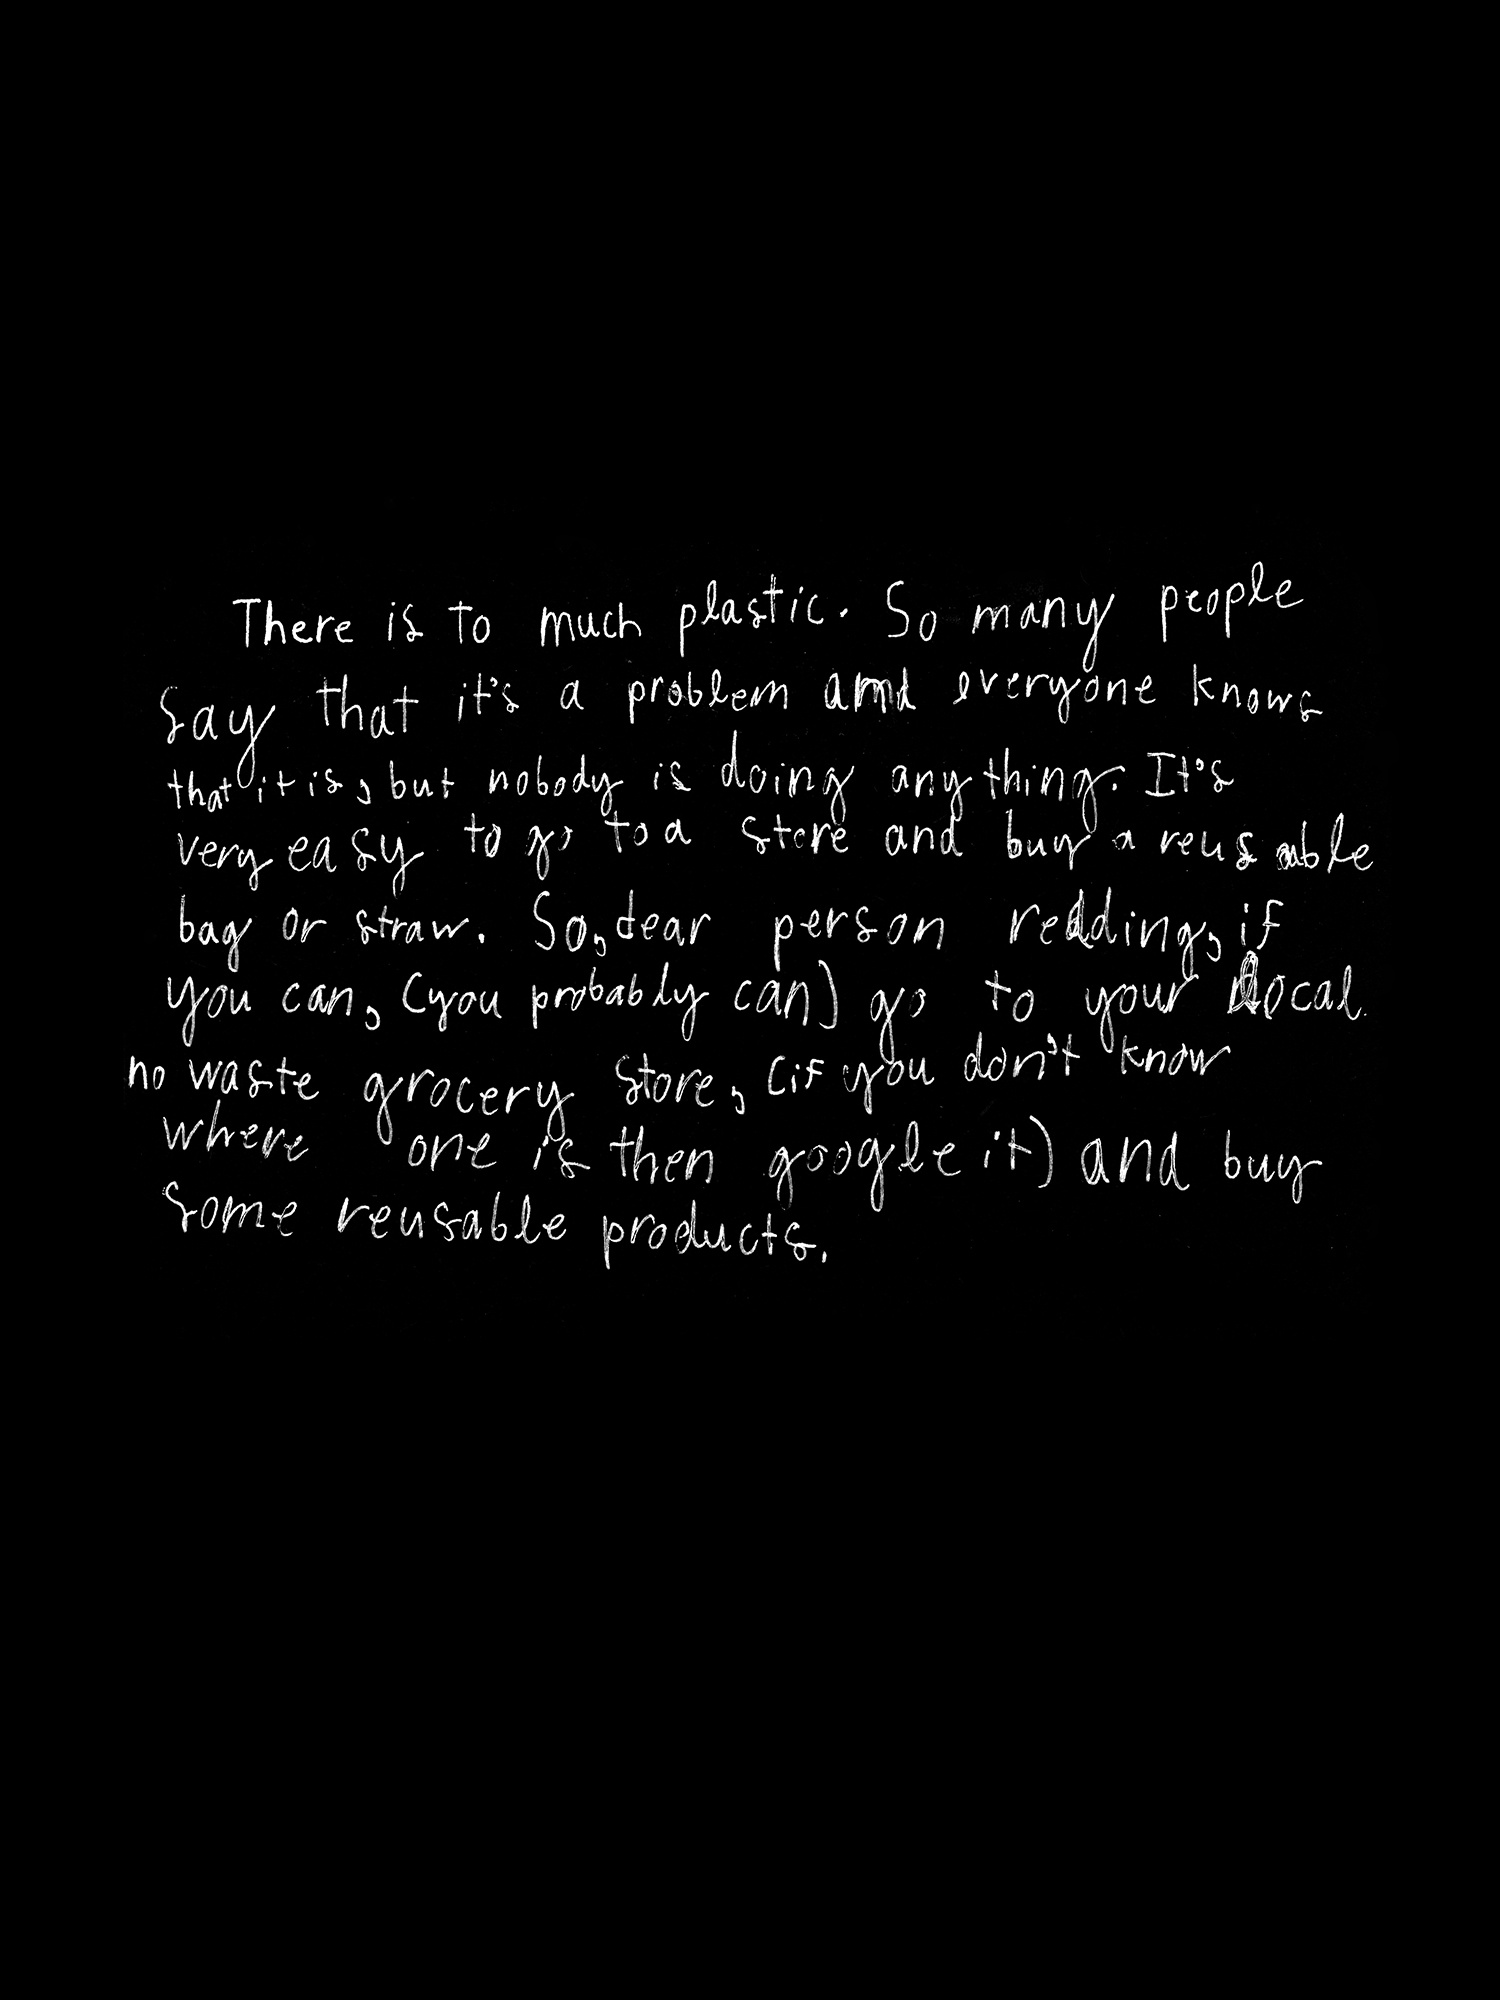 There is to much plastic. So many people
say that it's a problem and everyone knows
that it is, but nobody is doing anything. It's
very easy to go to a store and buy a reusable
bag or straw. So, dear person redding, if
you can, (you probably can) go to your local
no waste grocery store, (if you don't know
where one is then google it) and buy
some reusable products.